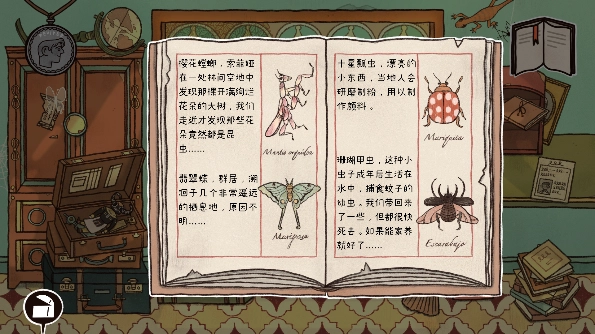 樱花螳螂，索菲娅
在一处林间空地中
发现那棵开满绚烂
花朵的大树，我们
走近才发现那些花
朵竟然都是昆
虫……
Mantis orquidea
翡翠蛾，群居，溯
洄于几个非常遥远
的栖息地，原因不
明……
Mariposa
十星瓢虫，漂亮的
小东西，当地人会
研磨制粉，用以制
作颜料。
Mariquita
珊瑚甲虫，这种小
虫子成年后生活在
水中，捕食蚊子的
幼虫。我们带回来
了一些，但都很快
死去。如果能家养
就好了……
Escarabajo